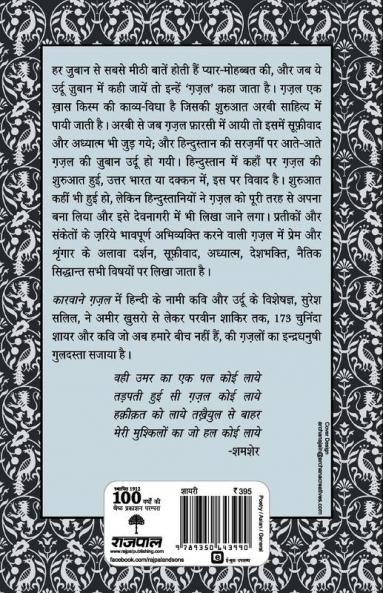 हर ज़ुबान से सबसे मीठी बातें होती हैं प्यार-मोहब्बत की, और जब ये
उर्दू ज़ुबान में कही जायें तो इन्हें ‘ग़ज़ल’ कहा जाता है। ग़ज़ल एक
ख़ास किस्म की काव्य-विधा है जिसकी शुरुआत अरबी साहित्य में
पायी जाती है। अरबी से जब ग़ज़ल फ़ारसी में आयी तो इसमें सूफ़ीवाद
और अध्यात्म भी जुड़ गये; और हिन्दुस्तान की सरज़मीं पर आते-आते
ग़ज़ल की ज़ुबान उर्दू हो गयी। हिन्दुस्तान में कहाँ पर ग़ज़ल की
शुरुआत हुई, उत्तर भारत या दक्कन में, इस पर विवाद है। शुरुआत
कहीं भी हुई हो, लेकिन हिन्दुस्तानियों ने ग़ज़ल को पूरी तरह से अपना
बना लिया और इसे देवनागरी में भी लिखा जाने लगा। प्रतीकों और
संकेतों के ज़रिये भावपूर्ण अभिव्यक्ति करने वाली ग़ज़ल में प्रेम और
शृंगार के अलावा दर्शन, सूफ़ीवाद, अध्यात्म, देशभक्ति, नैतिक
सिद्धान्त सभी विषयों पर लिखा जाता है।
कारवाने ग़ज़ल में हिन्दी के नामी कवि और उर्दू के विशेषज्ञ, सुरेश
सलिल, ने अमीर खुसरो से लेकर परवीन शाकिर तक, 173 चुनिंदा
शायर और कवि जो अब हमारे बीच नहीं हैं, की ग़ज़लों का इन्द्रधनुषी
गुलदस्ता सजाया है।
वही उमर का एक पल कोई लाये
तड़पती हुई सी ग़ज़ल कोई लाये
हक़ीक़त को लाये तख़ैयुल से बाहर
मेरी मुश्किलों का जो हल कोई लाये
-शमशेर
Cover Design
archanajain@archanacreatives.com
स्थापित 1912
100 वर्षों की
श्रेष्ठ प्रकाशन परम्परा
राजपाल
www.rajpalpublishing.com
facebook.com/rajpalandsons
शायरी
₹ 395
Poetry / Asian / General
9 789350 643990
ई-बुक उपलब्ध